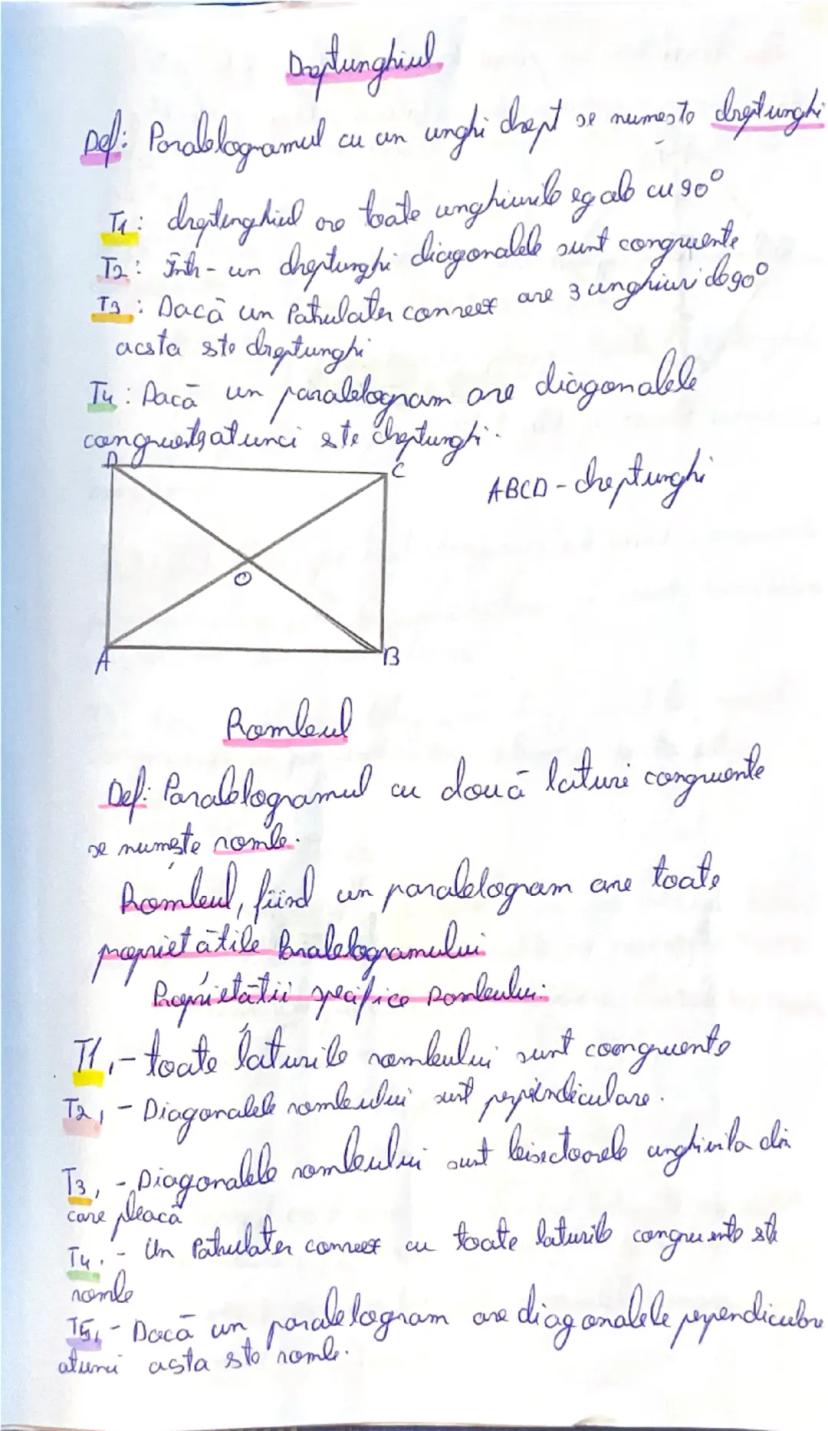 Dreptunghiul
Def: Paralelogramul cu un unghi drept se numește dreptunghi
T1: dreptunghiul are toate unghiurile egale cu 90°
T2: Într-un dreptunghi diagonalele sunt congruente
T3: Dacă un Patrulater convex are 3 unghiuri de 90°
acsta ste dreptunghi
T4: Dacă un paralelogram are diagonalele
congruente atunci ste dreptunghi.
D C ABCD - dreptunghi
O
A B
Rombul
Def: Paralelogramul cu două laturi congruente
se numește romb.
Rombul, fiind un paralelogram are toate
proprietățile Paralelogramului
Proprietății specifice Rombului:
T1,- toate laturile rombului sunt congruente
T2, - Diagonalele rombului sunt perpendiculare.
T3, - Diagonalele rombului sunt bisectoarele unghiurilor din
care pleacă
T4. - Un Patrulater convex cu toate laturile congruente ste
romb
T5, - Dacă un paralelogram are diagonalele perpendiculare
atunci asta ste romb.